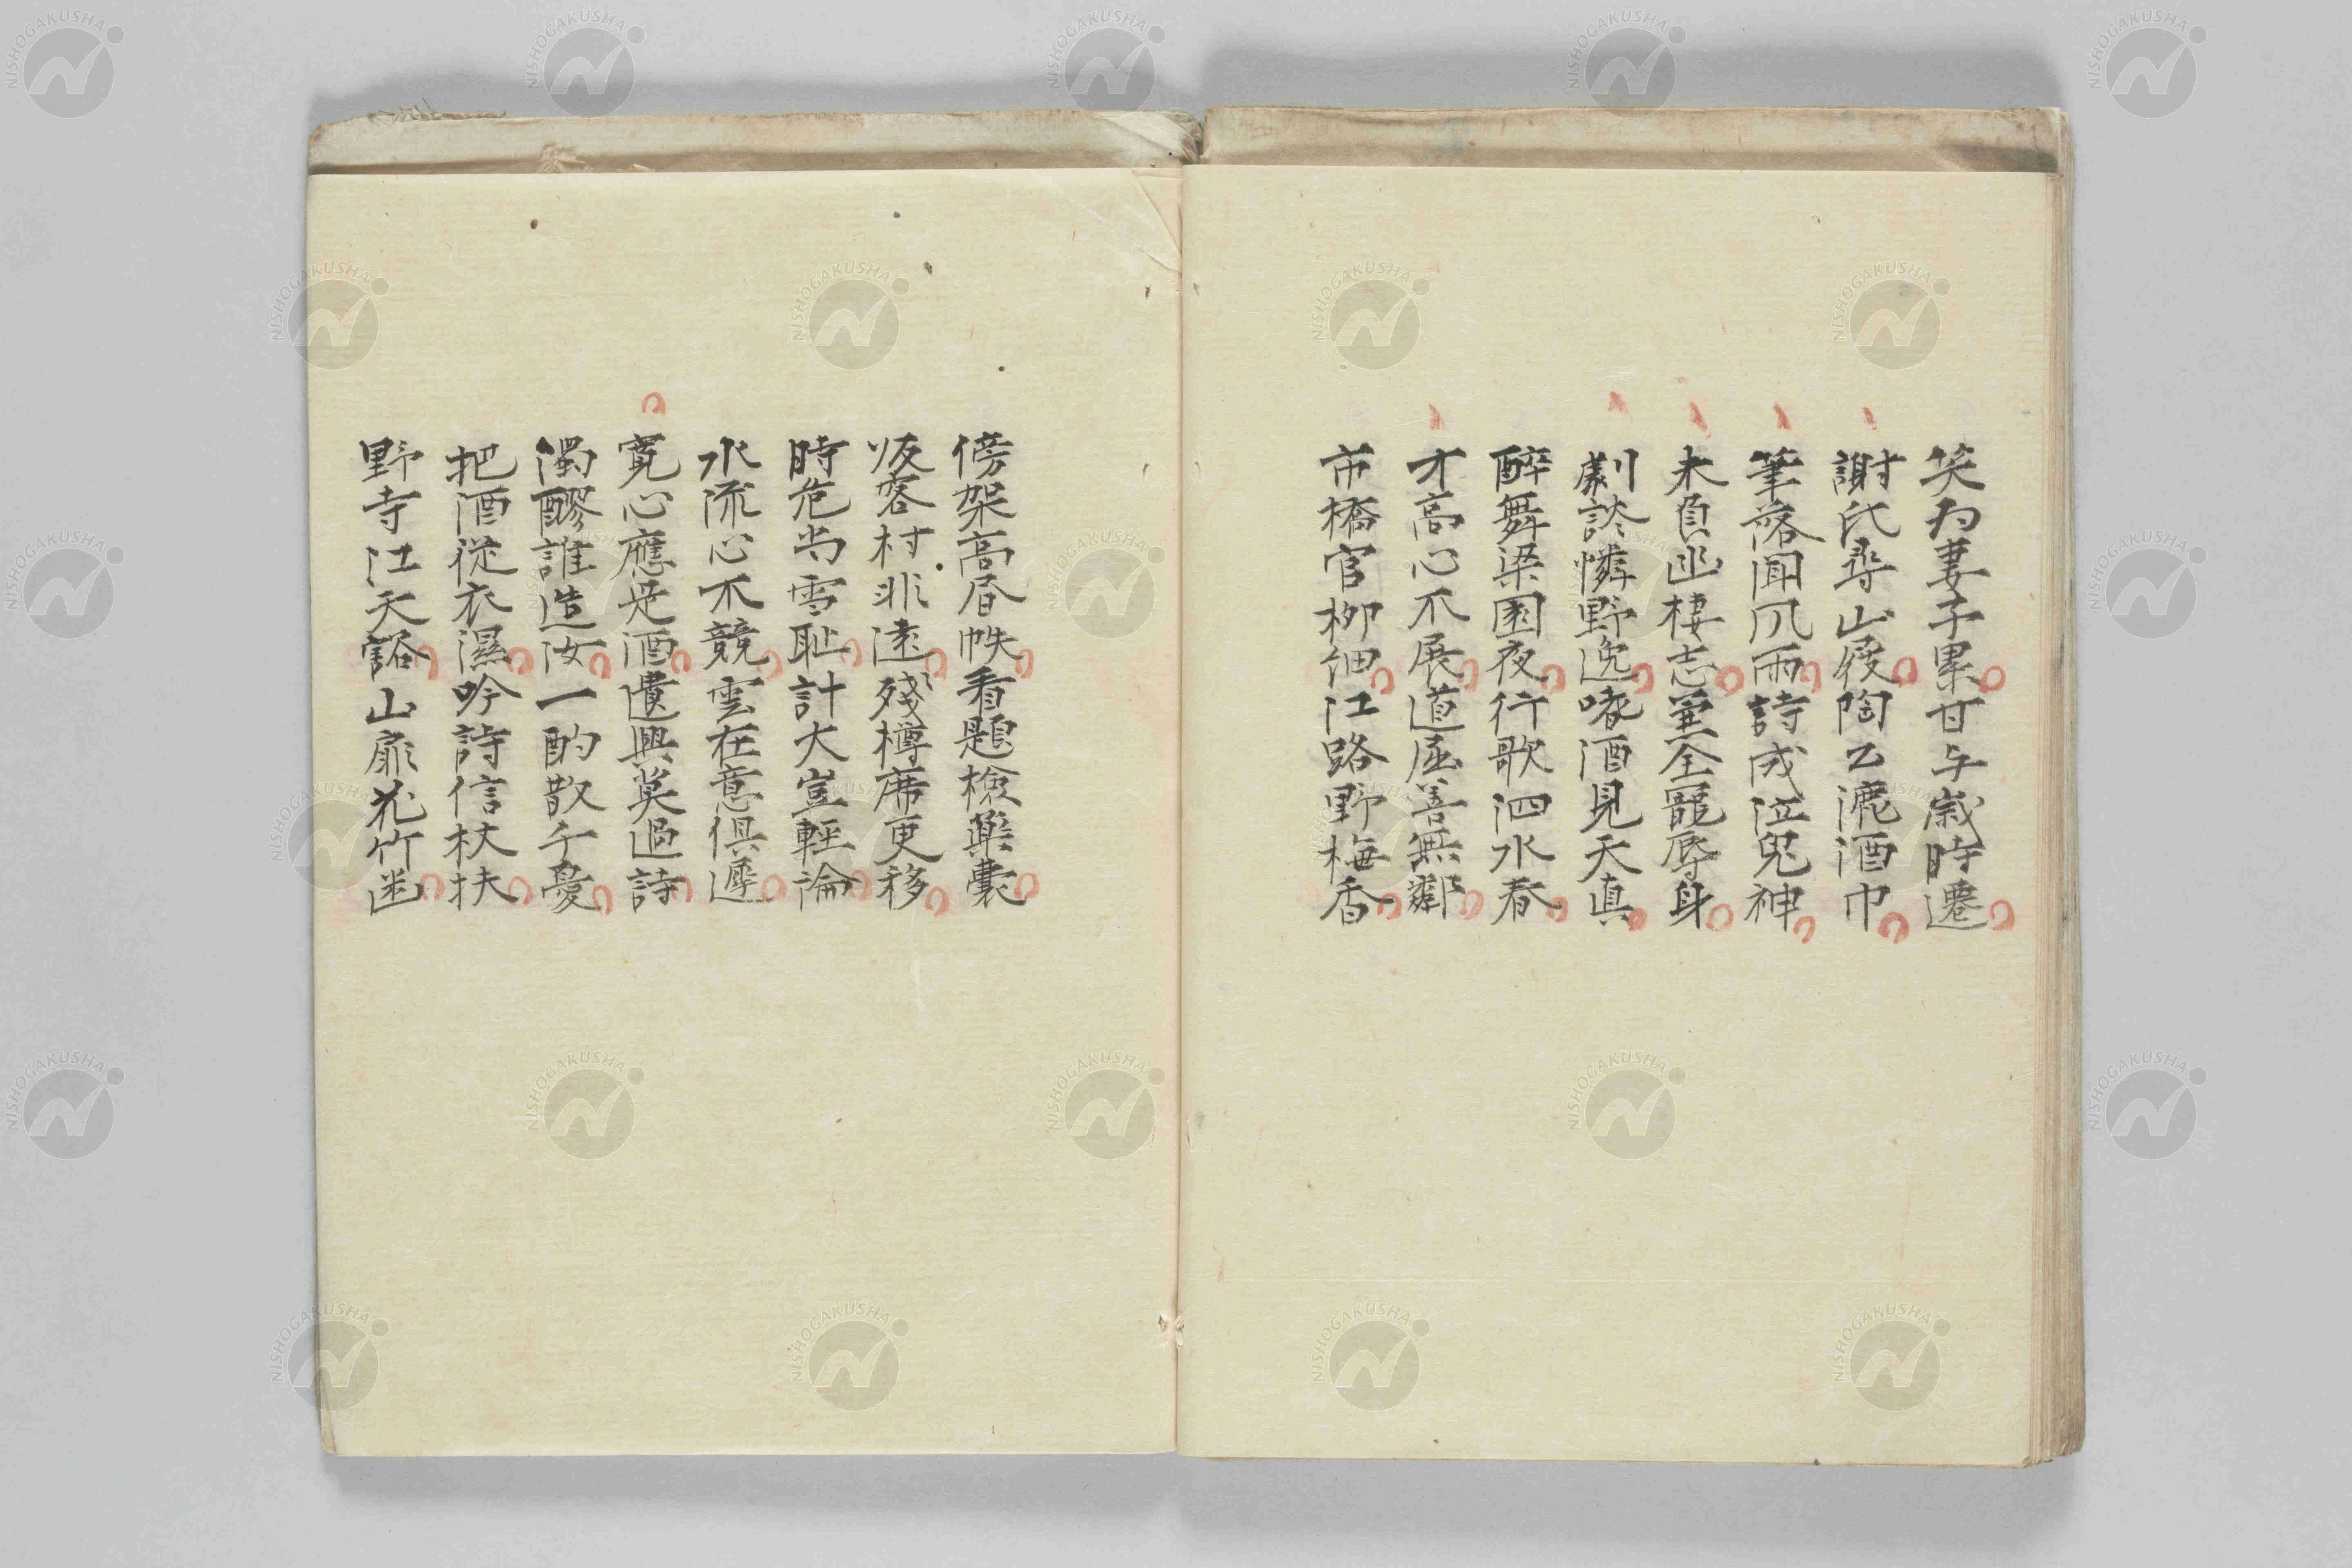 笑為妻子累甘与歳時遷
謝氏尋山屐陶公漉酒巾
筆落聞風雨詩成泣鬼神
未負幽棲志兼全寵辱身
劇談憐野逸嗜酒見天真
醉舞梁園夜行歌泗水春
才高心不展道屈善無鄰
市橋官柳細江路野梅香
傍架高書帙看題檢藥囊
皈客村非遠殘樽席更移
時危当雪恥計大豈輕論
水流心不競雲在意俱遲
寛心應是酒遣興莫過詩
濁醪誰造汝一酌散千憂
把酒從衣濕吟詩信杖扶
野寺江天豁山扉花竹幽
NISHOGAKUSHA